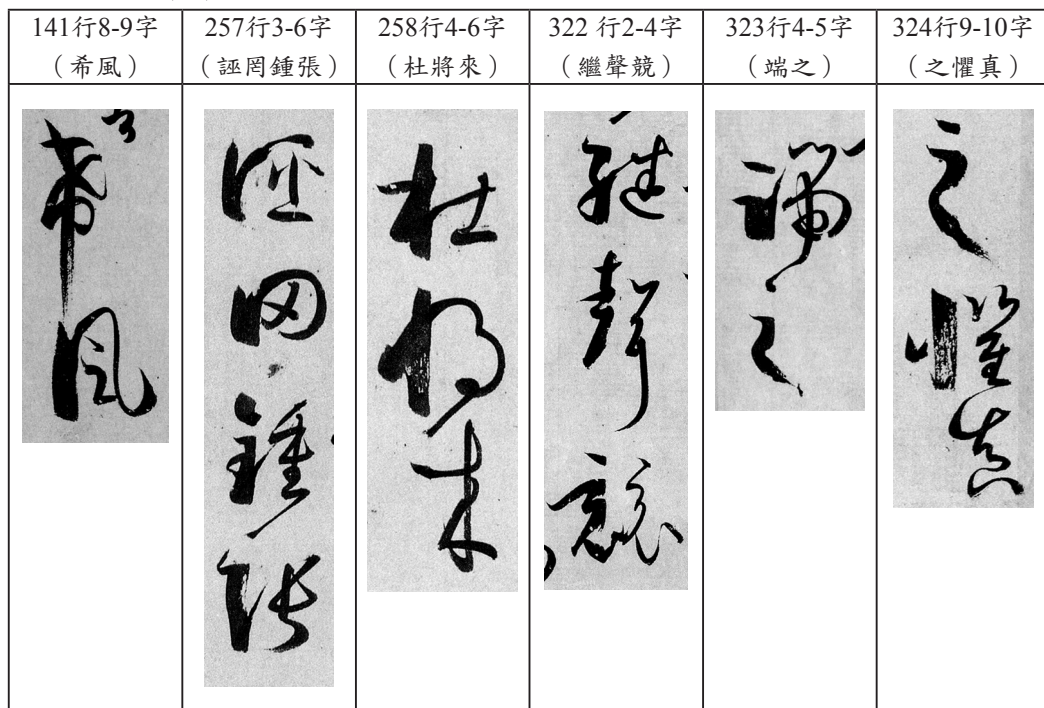 141行8-9字
（希風）
257行3-6字
（誣罔鍾張）
258行4-6字
（杜將來）
322 行2-4字
（繼聲競）
323行4-5字
（端之）
324行9-10字
（之懼真）
希風
誣罔鍾張
杜將來
繼聲競
端之
之懼真